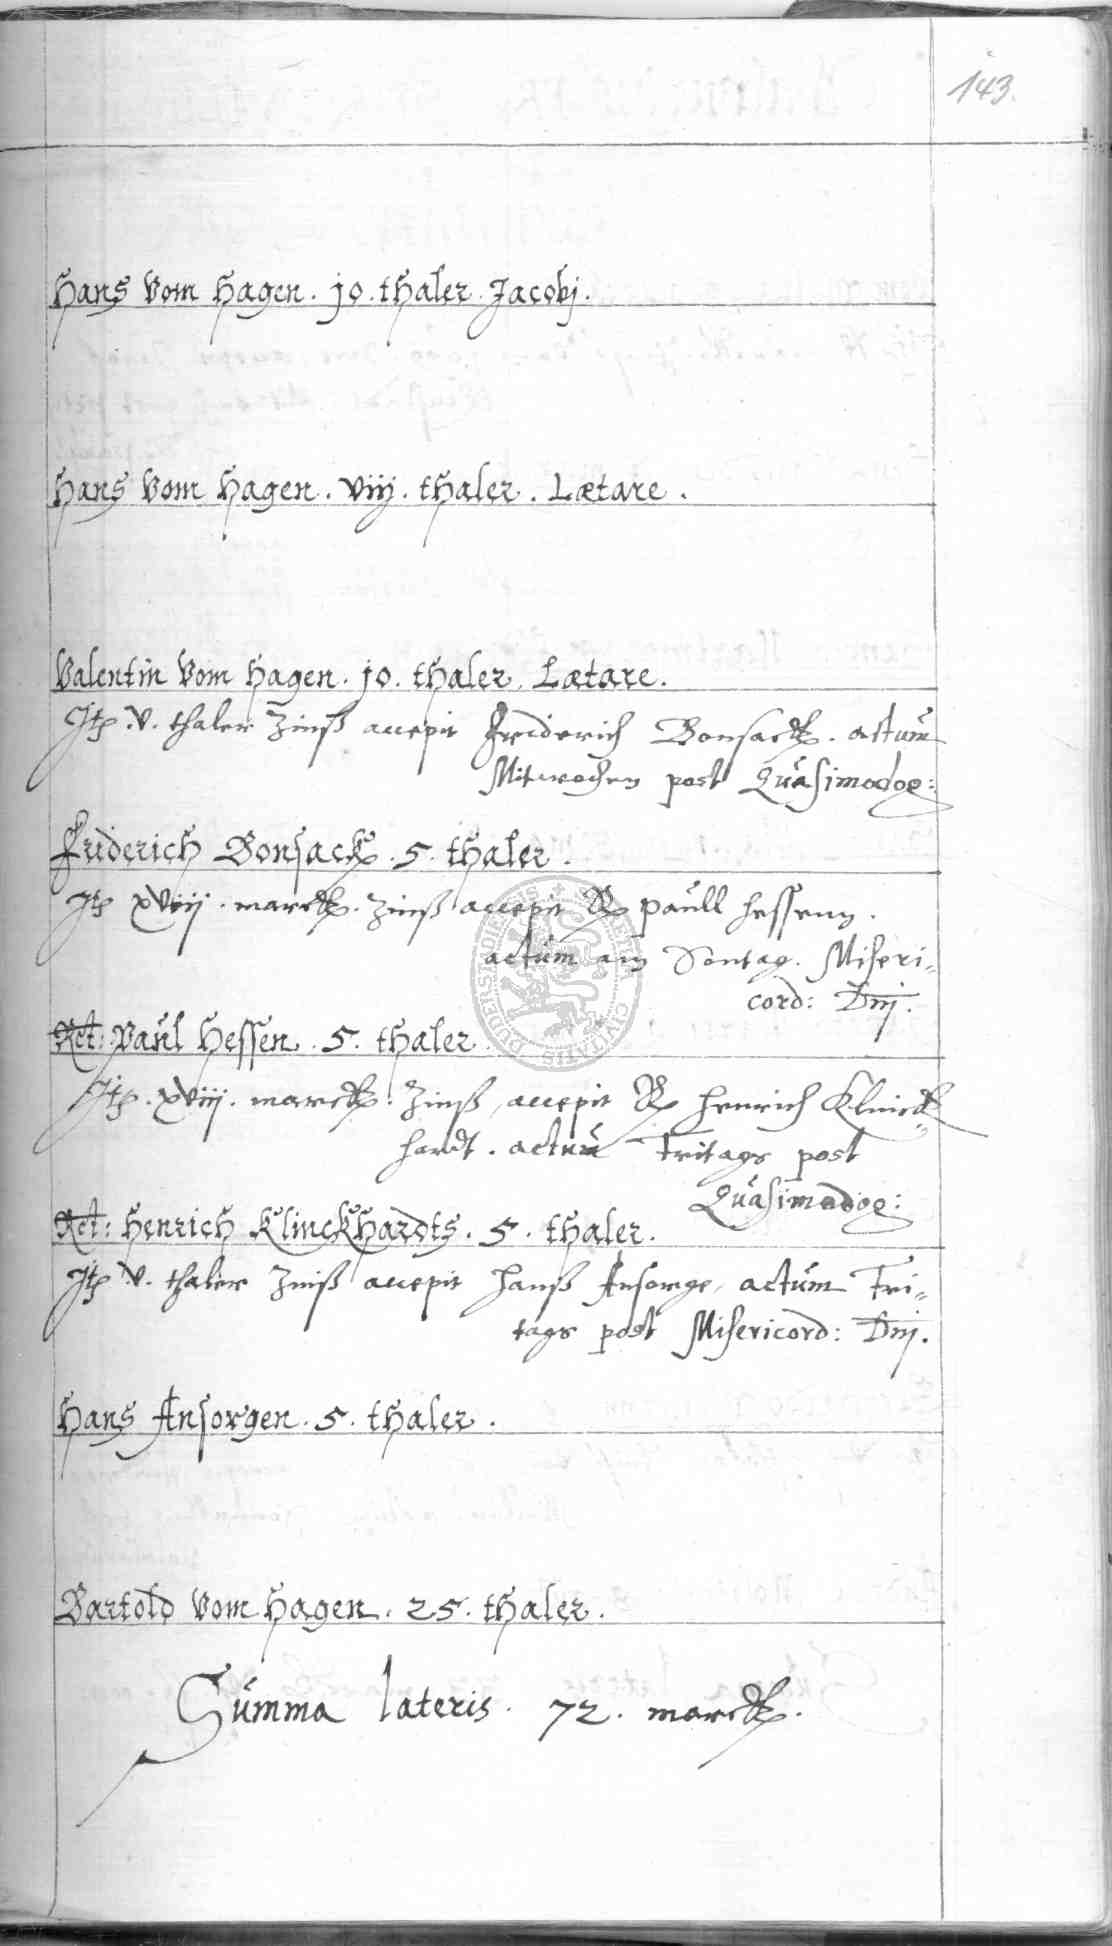 143.
Hans Vom Hagen. jo. thaler. Jacobj.
Hans Vom Hagen. viij. thaler. Lætare.
Valentin Vom Hagen. jo. thaler. Lætare.
Itp. v. thaler Zinß accepit Friderich Bonsack. actum
Mitwochen post Quasimodog:
Friderich Bonsack. 5. thaler.
Itp xviij. marck. Zinß accepit R paull Hessenn.
actum am Sontag. Miseri„
cord: Dnj.
Rct: Paul Hessen. 5. thaler.
Itp. xviij. marck. Zinß, accepit R Henrich Klinck„
hardt. actum Fritags post
Quasimodog:
Rct: Henrich Klinckhardts. 5. thaler.
Itp v. thaler Zinß accepit Hanß Ansorge, actum Fri„
tags post Misericord: Dnj.
Hans Ansorgen. 5. thaler.
Bartold Vom Hagen. 25. thaler.
Summa lateris. 72. marck.